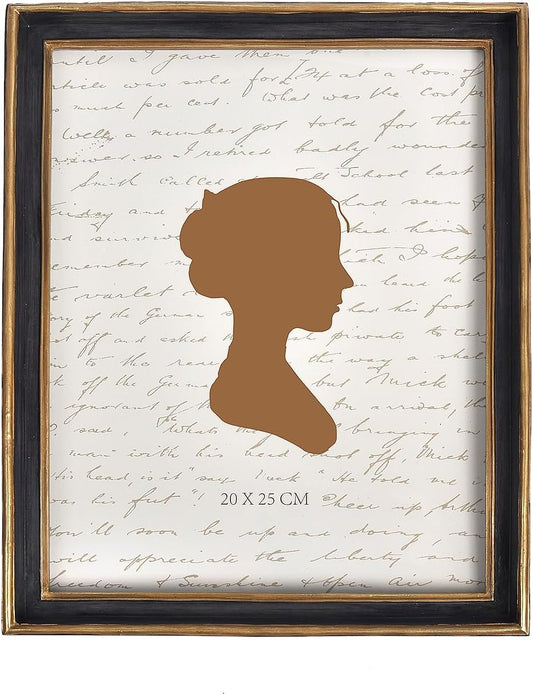 until I gave them one
article was sold for at a loss. If
s much per cent. What was the cost pr
Well, a number got told for the
answer, so I retired badly wounde
Smith called School last
Friday and had seen
and surviv ked him
emember m I hope
e varlet
ory of the German had his foot
t off and asked private to car
in to the rear the way a shel
k off the Germa but Mick w
ignorant of On arrival, th
said, "Whats bringing in
man" with his head knot off, Mick
his head, is it" say Mick "He told me
was his fut"! Cheer up Arthu
20 X 25 CM
You'll soon be up and doing, an
will appreciate the liberty and
freedom & Sunshine & Open Air mor